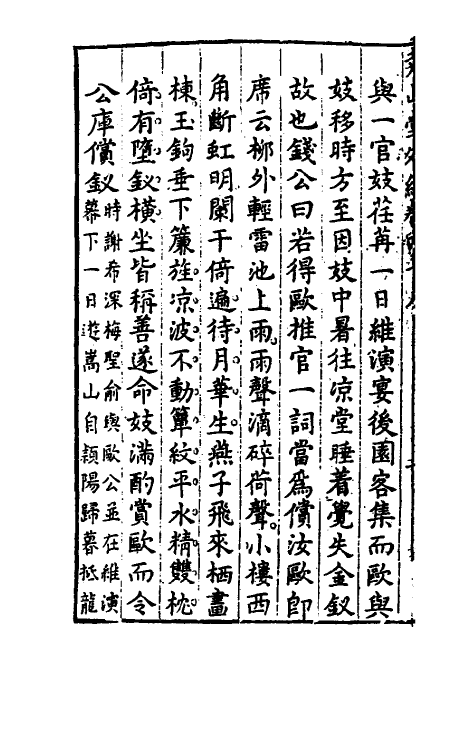 與一官妓荏苒一日維演宴後園客集而歐與
妓移時方至因妓中暑往凉堂睡着覺失金釵
故也錢公曰若得歐推官一詞當爲償汝歐即
席云栁外輕雷池上雨雨聲滴碎荷聲小樓西
角斷虹明闌干倚遍待月華生燕子飛來栖畫
棟玉鉤垂下簾旌凉波不動簟紋平水精雙枕
倚有墮釵横坐皆稱善遂命妓滿酌賞歐而令
公庫償釵
時謝希深梅聖俞與歐公並在維演
幕下一日遊嵩山自潁陽歸暮抵龍